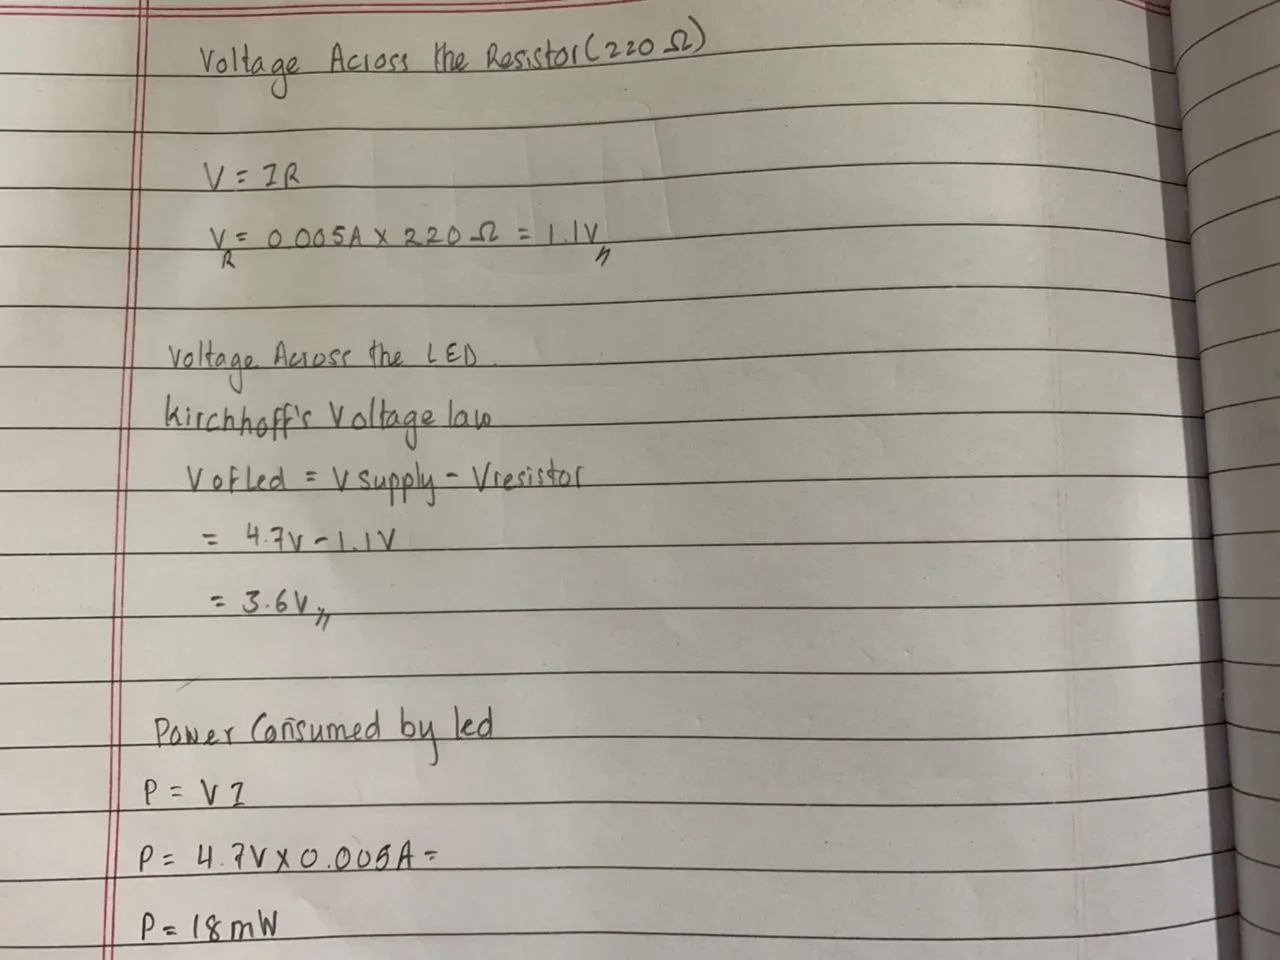 Voltage Across the Resistor (220 Ω)
V = IR
V_R = 0.005A × 220 Ω = 1.1V
Voltage Across the LED
Kirchhoff's Voltage law
V of Led = V supply - Vresistor
= 4.7V - 1.1V
= 3.6V
Power Consumed by led
P = VI
P = 4.7V × 0.005A =
P = 18mW